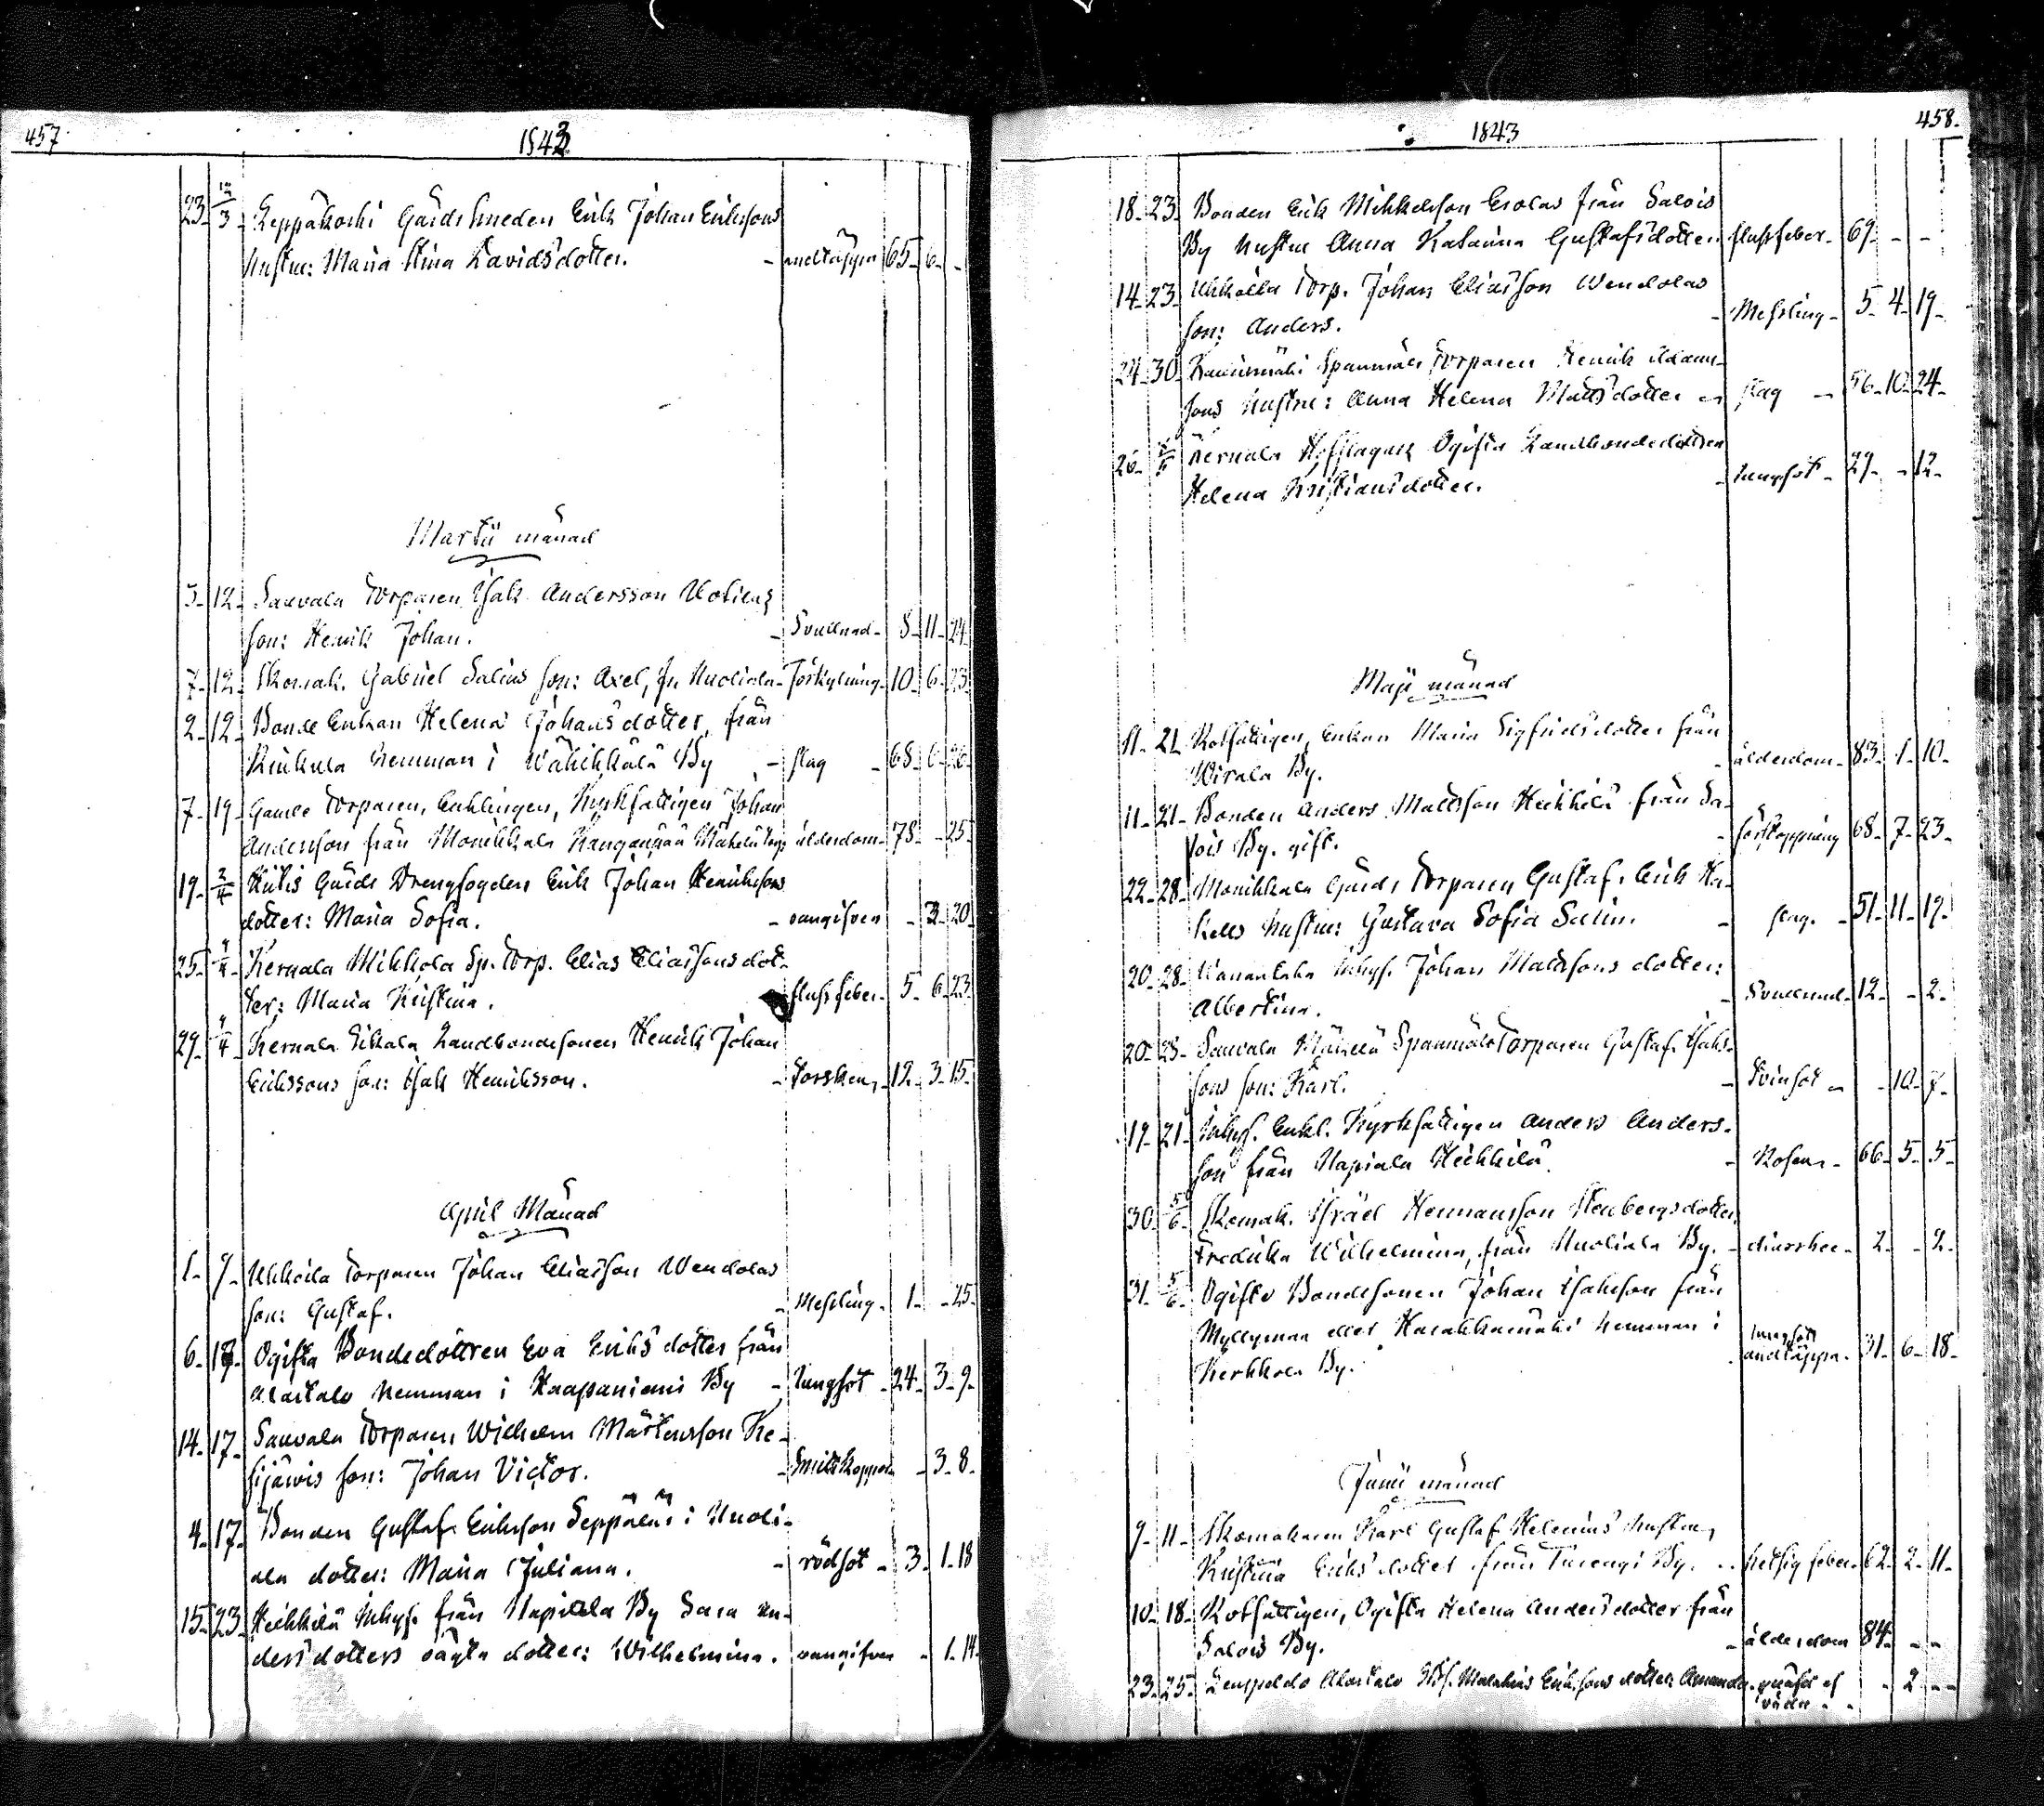 457
1843
23. 12/3. Leppäkoski Gårds smeden Erik Johan Erikssons
hustru: Maria Stina Davidsdotter. - andtäppa 65. 6. -
Martii månad
5. 12. Sauvala Torparen Isak Andersson Uotilas
son: Henrik Johan. - Svullnad. 8. 11. 24.
7. 12. Skomak. Gabriel Salins son: Axel, fr. Nuoliala. Förkylning. 10. 6. 23.
2. 12. Bonde Enkan Helena Johansdotter, från
hemman i Wähikkälä By - slag - 68. 6. 26.
7. 19. Gamle Torparen, Enklingen, Kyrkfattigen Johan
Andersson från Monikkala Kangasmaa Mäkelä Torp ålderdom. 78. - 25.
19. 2/4 Gårds Drengfogden Erik Johan Henrikssons
dotter: Maria Sofia. - oangifven - 2. 20.
25. 4/4. Kernala Mikkola Sp. Torp. Elias Eliassons dot-
ter: Maria Kristina. flussfeber. 5. 6. 23.
29. 4/4 Kernala Eikala Landbondesonen Henrik Johan
Erikssons son: Isak Henriksson. - Torsken, 12. 3. 15.
April Månad
1. 9. Uhkoila Torparen Johan Eliasson Wendolas
son: Gustaf. - Messling. 1. - 25.
6. 17. Ogifta Bondedottren Eva Eriksdotter från
Alastalo hemman i Haapaniemi By - lungsot - 24. 3. 9.
14. 17. Sauvala Torparen Wilhelm Mårtensson Ke-
sijärvis son: Johan Victor. - Smittkoppor - 3. 8.
4. 17. Bonden Gustaf Eriksson Seppäläs i Nuoli-
ala dotter: Maria Juliana. - rödsot - 3. 1. 18
15. 23. Heikkilä Inhys. från Napiala By Sara An-
dersdotters oägta dotter: Wilhelmina. oangifven - 1. 14.
458.
1843
18. 23. Bonden Erik Mikkelsson Erolas från Salois
By hustru Anna Katarina Gustafsdotter. flussfeber. 69. - -
14. 23. Uhkoila Torp. Johan Eliasson Wendolas
son: Anders. - Messling. 5. 4. 19.
24. 30. Spanmåls Torparen Henrik Adams-
sons hustru: Anna Helena Mattsdotter - slag - 56. 10. 24.
26. Kernala Ogifta Landbondedottren
Helena Kristiansdotter. - lungsot. 29. - 12.
Maji månad
11. 21. Rotfattigen, Enkan Maria Sigfridsdotter från
Wirala By. - ålderdom. 83. 1. 10.
11. 21. Bonden Anders Mattsson Heikkilä från Sa-
lois By. gift. - förstoppning 68. 7. 23.
22. 28. Monikkala Gårds Torparen Gustaf Erik
hustru: Gustava Sofia Salin. - slag. - 51. 11. 19.
20. 28. Inhys. Johan Mattssons dotter:
Albertina. - Svullnad. 12. - 2.
20. 28. Sauvala Mäkelä Spanmåls Torparen Gustaf Isaks-
sons son: Karl. - Tvinsot - - 10. 7.
19. 21. Inhys. Enkl. Kyrkfattigen Anders Anders-
son från Napiala Heikkilä. - Rosen. - 66. 5. 5.
30. 5/6. Skomak. Israel Hermansson Stenbergs dotter
Fredrika Wilhelmina, från Nuoliala By. - diarrhee - 2. - 2.
31. 5/6. Ogifte Bondesonen Johan Isaksson från
Myllymaa eller Harakkamäki hemman i
Kerkkola By. - lungsot andtäppa. 31. 6. 18.
Junii månad
9. 11. Skomakaren Karl Gustaf Helenius hustru,
Kristina Eriksdotter från Turengi By. - hetsig feber. 62. 2. 11.
10. 18. Rotfattigen, Ogifta Helena Andersdotter från
Salois By. - ålderdom 84. - -
23. 25. Alastalo Mathias Erikssons dotter Amanda. qväfd af våda - - 2. - -